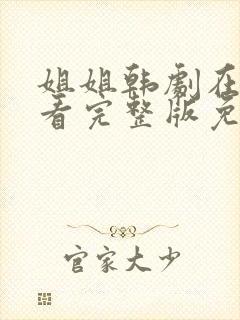 姐姐韩剧在
看完整版免
官家大少